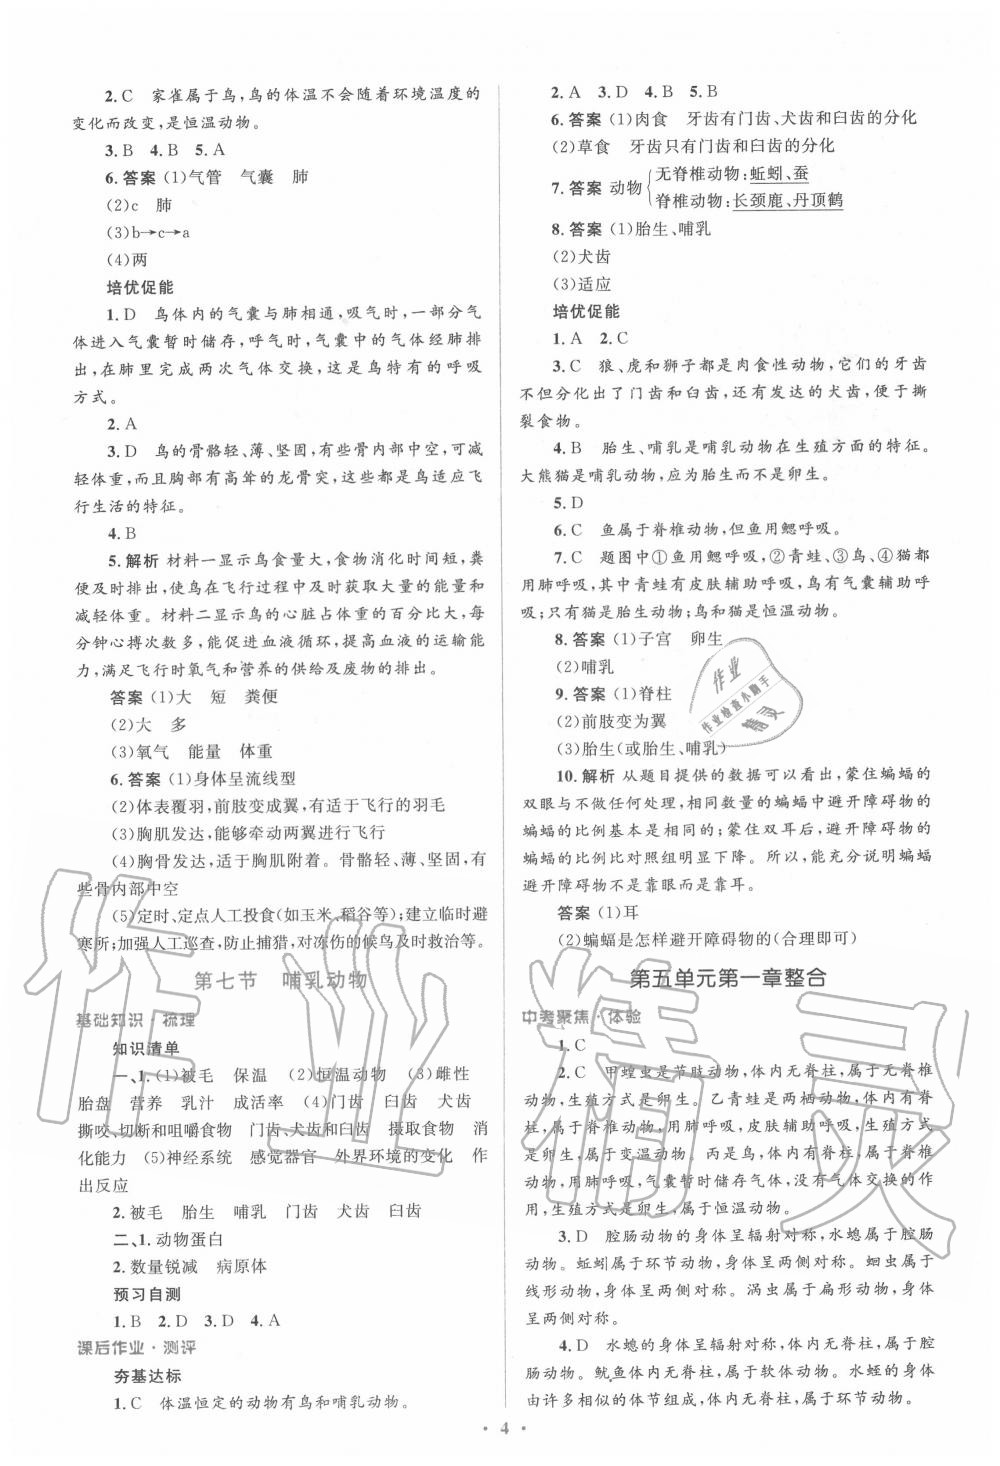 2.C　家雀属于鸟,鸟的体温不会随着环境温度的
变化而改变,是恒温动物。
3.B　4.B　5.A
6.答案 (1)气管　气囊　肺
(2)c　肺
(3)b→c→a
(4)两
培优促能
1.D　鸟体内的气囊与肺相通,吸气时,一部分气
体进入气囊暂时储存,呼气时,气囊中的气体经肺排
出,在肺里完成两次气体交换,这是鸟特有的呼吸
方式。
2.A
3.D　鸟的骨骼轻、薄、坚固,有些骨内部中空,可减
轻体重,而且胸部有高耸的龙骨突,这些都是鸟适应飞
行生活的特征。
4.B
5.解析 材料一显示鸟食量大,食物消化时间短,粪
便及时排出,使鸟在飞行过程中及时获取大量的能量和
减轻体重。材料二显示鸟的心脏占体重的百分比大,每
分钟心搏次数多,能促进血液循环,提高血液的运输能
力,满足飞行时氧气和营养的供给及废物的排出。
答案 (1)大　短　粪便
(2)大　多
(3)氧气　能量　体重
6.答案 (1)身体呈流线型
(2)体表覆羽,前肢变成翼,有适于飞行的羽毛
(3)胸肌发达,能够牵动两翼进行飞行
(4)胸骨发达,适于胸肌附着。骨骼轻、薄、坚固,有
些骨内部中空
(5)定时、定点人工投食(如玉米、稻谷等);建立临时避
寒所;加强人工巡查,防止捕猎,对冻伤的候鸟及时救治等。
第七节　哺乳动物
基础知识·梳理
知识清单
一、1.(1)被毛　保温　(2)恒温动物　(3)雌性
胎盘　营养　乳汁　成活率　(4)门齿　臼齿　犬齿
撕咬、切断和咀嚼食物　门齿、犬齿和臼齿　摄取食物　消
化能力　(5)神经系统　感觉器官　外界环境的变化　作
出反应
2.被毛　胎生　哺乳　门齿　犬齿　臼齿
二、1.动物蛋白
2.数量锐减　病原体
预习自测
1.B　2.D　3.D　4.A
课后作业·测评
夯基达标
1.C　体温恒定的动物有鸟和哺乳动物。
2.A　3.D　4.B　5.B
6.答案 (1)肉食　牙齿有门齿、犬齿和臼齿的分化
(2)草食　牙齿只有门齿和臼齿的分化
7.答案 动物
无脊椎动物:蚯蚓、蚕
脊椎动物:长颈鹿、丹顶鹤
8.答案 (1)胎生、哺乳
(2)犬齿
(3)适应
培优促能
1.A　2.C
3.C　狼、虎和狮子都是肉食性动物,它们的牙齿
不但分化出了门齿和臼齿,还有发达的犬齿,便于撕
裂食物。
4.B　胎生、哺乳是哺乳动物在生殖方面的特征。
大熊猫是哺乳动物,应为胎生而不是卵生。
5.D
6.C　鱼属于脊椎动物,但鱼用鳃呼吸。
7.C　题图中①鱼用鳃呼吸,②青蛙、③鸟、④猫都
用肺呼吸,其中青蛙有皮肤辅助呼吸,鸟有气囊辅助呼
吸;只有猫是胎生动物;鸟和猫是恒温动物。
8.答案 (1)子宫　卵生
(2)哺乳
9.答案 (1)脊柱
(2)前肢变为翼
(3)胎生(或胎生、哺乳)
10.解析 从题目提供的数据可以看出,蒙住蝙蝠的
双眼与不做任何处理,相同数量的蝙蝠中避开障碍物的
蝙蝠的比例基本是相同的;蒙住双耳后,避开障碍物的
蝙蝠的比例比对照组明显下降。所以,能充分说明蝙蝠
避开障碍物不是靠眼而是靠耳。
答案 (1)耳
(2)蝙蝠是怎样避开障碍物的(合理即可)
第五单元第一章整合
中考聚焦·体验
1.C
2.C　甲蝗虫是节肢动物,体内无脊柱,属于无脊椎
动物,生殖方式是卵生。乙青蛙是两栖动物,体内有脊
柱,属于脊椎动物,用肺呼吸,皮肤辅助呼吸,生殖方式
是卵生,属于变温动物。丙是鸟,体内有脊柱,属于脊椎
动物,用肺呼吸,气囊暂时储存气体,没有气体交换的作
用,生殖方式是卵生,属于恒温动物。
3.D　腔肠动物的身体呈辐射对称,水螅属于腔肠
动物。蚯蚓属于环节动物,身体呈两侧对称。蛔虫属于
线形动物,身体呈两侧对称。涡虫属于扁形动物,身体
呈两侧对称。
4.D　水螅的身体呈辐射对称,体内无脊柱,属于腔
肠动物。鱿鱼体内无脊柱,属于软体动物。水蛭的身体
由许多相似的体节组成,体内无脊柱,属于环节动物。
· 4 ·
作业
作业检查小助手
精灵
作业精灵